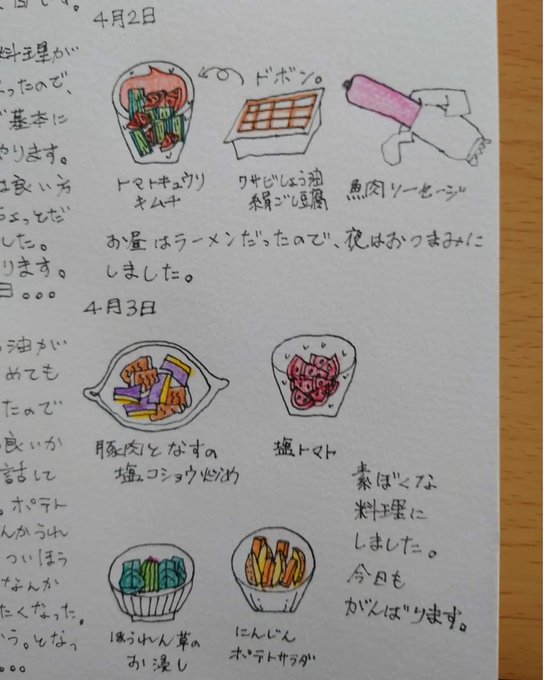 料理が
ったので、
基本に
やります。
は良い方
ちょっとだ
した。
ります。
日。。。
油が
めても
たので
良いか
話して
。ポテト
んかうれ
ついほう
なんか
たくなった。
う。となっ
。。。
4月2日
ドボン。
トマトキュウリ
キムチ
ワサビしょう油
絹ごし豆腐
魚肉ソーセージ
お昼はラーメンだったので、夜はおつまみに
しました。
4月3日
豚肉となすの
塩コショウ炒め
塩トマト
素ぼくな
料理に
しました。
今日も
がんばります。
ほうれん草の
お浸し
にんじん
ポテトサラダ